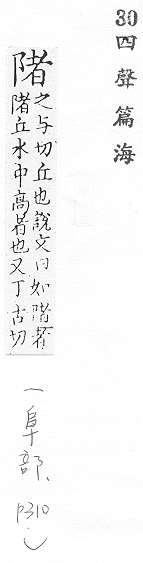 30四聲篇海
陼
之与切丘也說文曰如陼者
陼丘水中高者也又丁古切
(阜部、p310.)